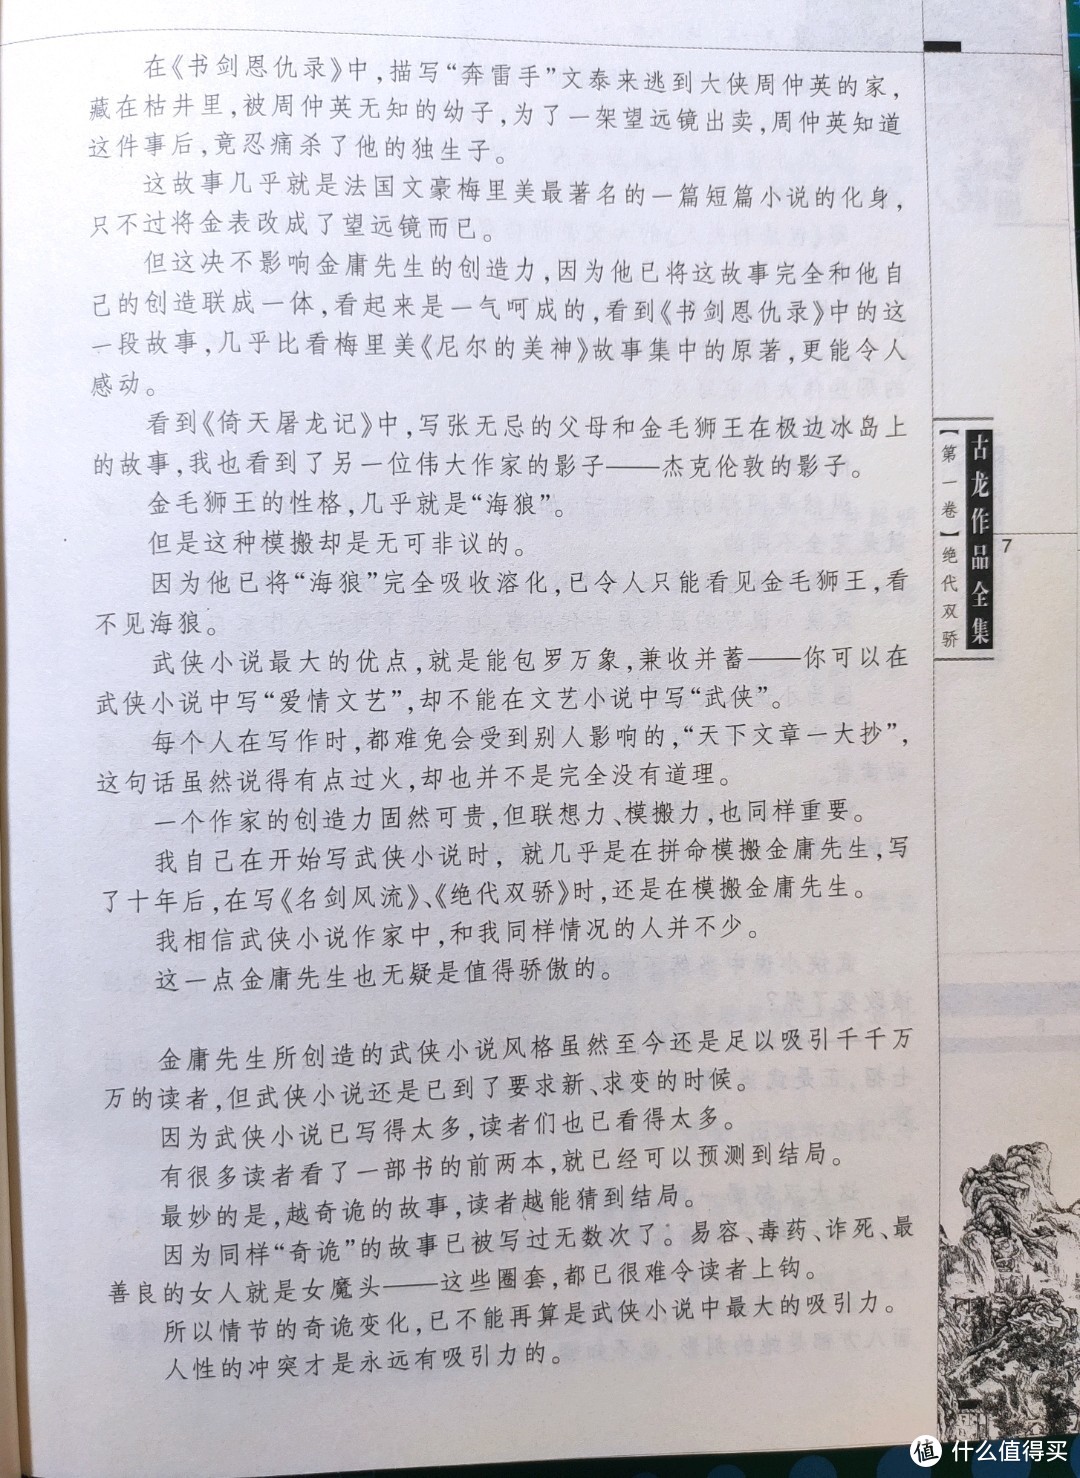 在《书剑恩仇录》中，描写“奔雷手”文泰来逃到大侠周仲英的家，
藏在枯井里，被周仲英无知的幼子，为了一架望远镜出卖，周仲英知道
这件事后，竟忍痛杀了他的独生子。
这故事几乎就是法国文豪梅里美最著名的一篇短篇小说的化身，
只不过将金表改成了望远镜而已。
但这决不影响金庸先生的创造力，因为他已将这故事完全和他自
己的创造联成一体，看起来是一气呵成的，看到《书剑恩仇录》中的这
一段故事，几乎比看梅里美《尼尔的美神》故事集中的原著，更能令人
感动。
看到《倚天屠龙记》中，写张无忌的父母和金毛狮王在极边冰岛上
的故事，我也看到了另一位伟大作家的影子——杰克伦敦的影子。
金毛狮王的性格，几乎就是“海狼”。
但是这种模搬却是无可非议的。
因为他已将“海狼”完全吸收溶化，已令人只能看见金毛狮王，看
不见海狼。
武侠小说最大的优点，就是能包罗万象，兼收并蓄——你可以在
武侠小说中写“爱情文艺”，却不能在文艺小说中写“武侠”。
每个人在写作时，都难免会受到别人影响的，“天下文章一大抄”，
这句话虽然说得有点过火，却也并不是完全没有道理。
一个作家的创造力固然可贵，但联想力、模搬力，也同样重要。
我自己在开始写武侠小说时，就几乎是在拼命模搬金庸先生，写
了十年后，在写《名剑风流》、《绝代双骄》时，还是在模搬金庸先生。
我相信武侠小说作家中，和我同样情况的人并不少。
这一点金庸先生也无疑是值得骄傲的。
金庸先生所创造的武侠小说风格虽然至今还是足以吸引千千万
万的读者，但武侠小说还是已到了要求新、求变的时候。
因为武侠小说已写得太多，读者们也已看得太多。
有很多读者看了一部书的前两本，就已经可以预测到结局。
最妙的是，越奇诡的故事，读者越能猜到结局。
因为同样“奇诡”的故事已被写过无数次了。易容、毒药、诈死、最
善良的女人就是女魔头——这些圈套，都已很难令读者上钩。
所以情节的奇诡变化，已不能再算是武侠小说中最大的吸引力。
人性的冲突才是永远有吸引力的。
古龙作品全集
【第一卷】绝代双骄
7
值 什么值得买